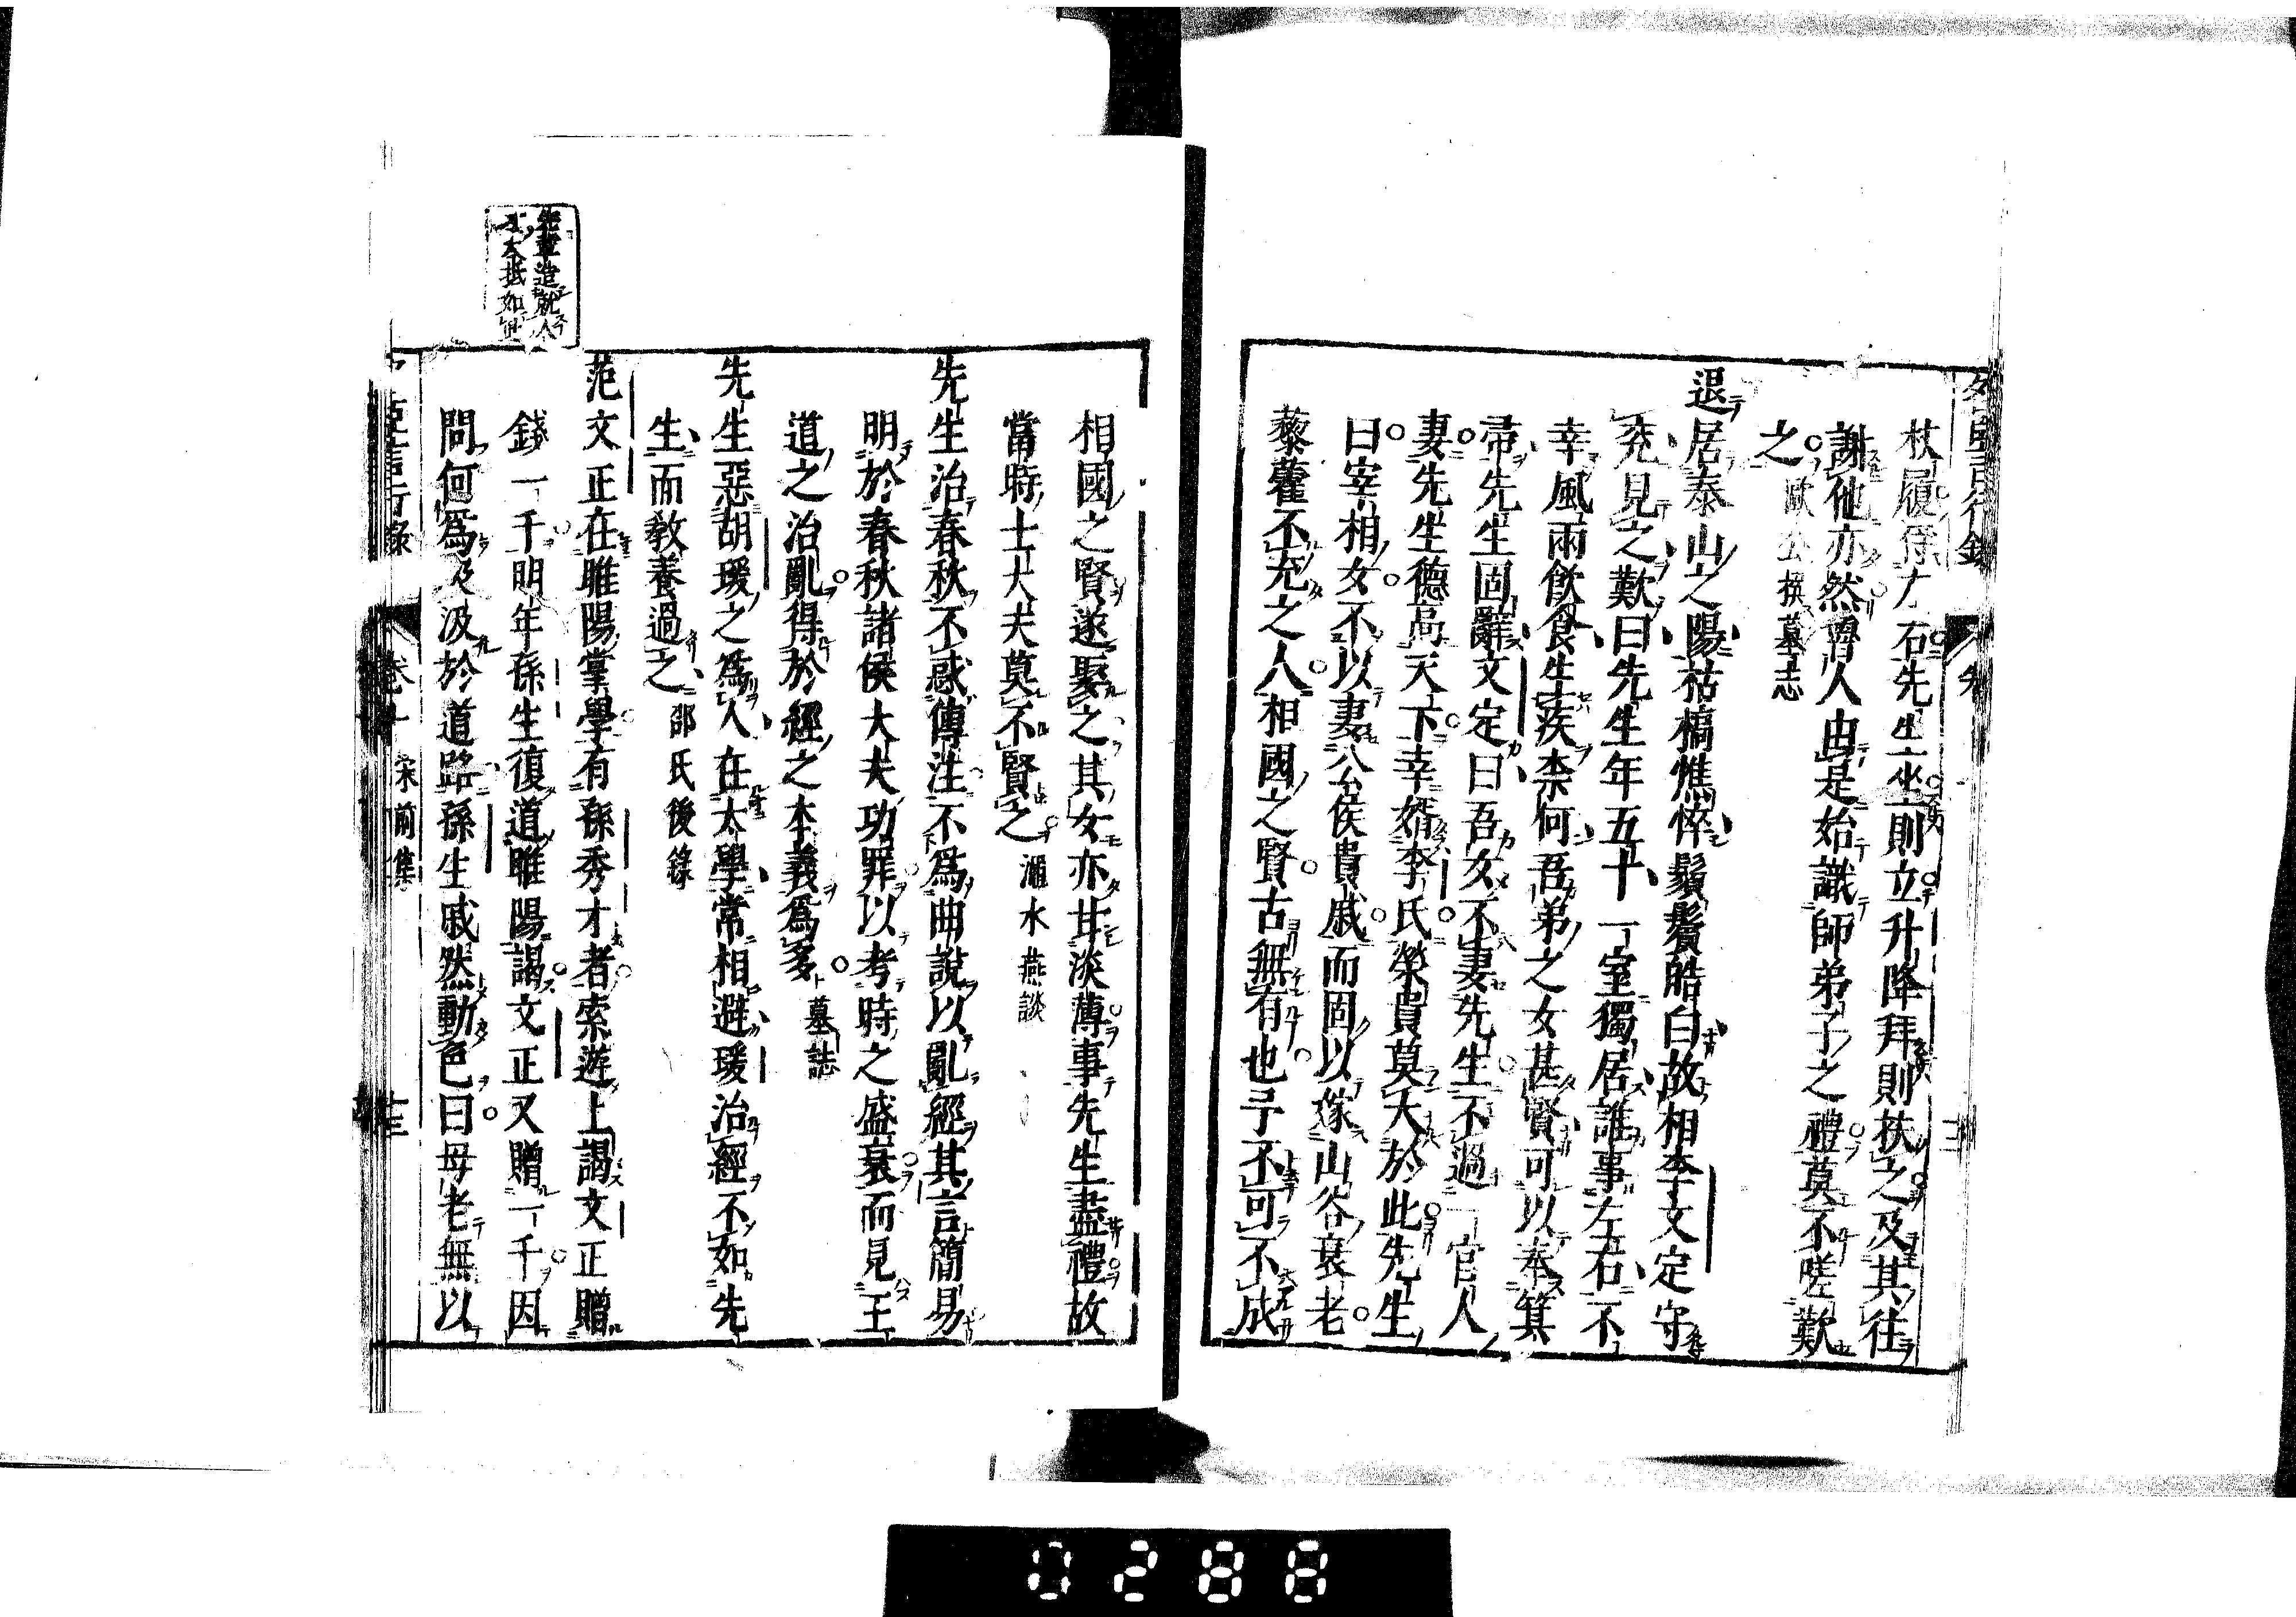 杖屨侍左右先生坐則立升降拜則扶之及其往
謝也亦然魯人由是始識師弟子之禮莫不嗟歎
之 歐公撰墓志
退居泰山之陽枯槁憔悴鬚鬢皓白故相李文定守
兗見之歎曰先生年五十一室獨居誰事左右不
幸風雨飲食生疾柰何吾弟之女甚賢可以奉箕
帚先生固辭文定曰吾女不妻先生不過一官人
妻先生德高天下幸婿李氏榮貴莫大於此先生
曰宰相女不以妻公侯貴戚而固以嫁山谷衰老
藜藿不充之人相國之賢古無有也予不可不成
相國之賢遂娶之其女亦甘淡薄事先生盡禮故
當時士大夫莫不賢之 澠水燕談
先生治春秋不惑傳注不為曲說以亂經其言簡易
明於春秋諸侯大夫功罪以考時之盛衰而見王
道之治亂得於經之本義為多 墓誌
先生惡胡瑗之為人在太學常相避瑗治經不如先
生而教養過之 邵氏後錄
范文正在睢陽掌學有孫秀才者索遊上謁文正贈
錢一千明年孫生復道睢陽謁文正又贈一千因
問何為汲汲於道路孫生戚然動色曰母老無以
先輩造就人
才大抵如此
言行錄 卷十 宋前集 十三
0288